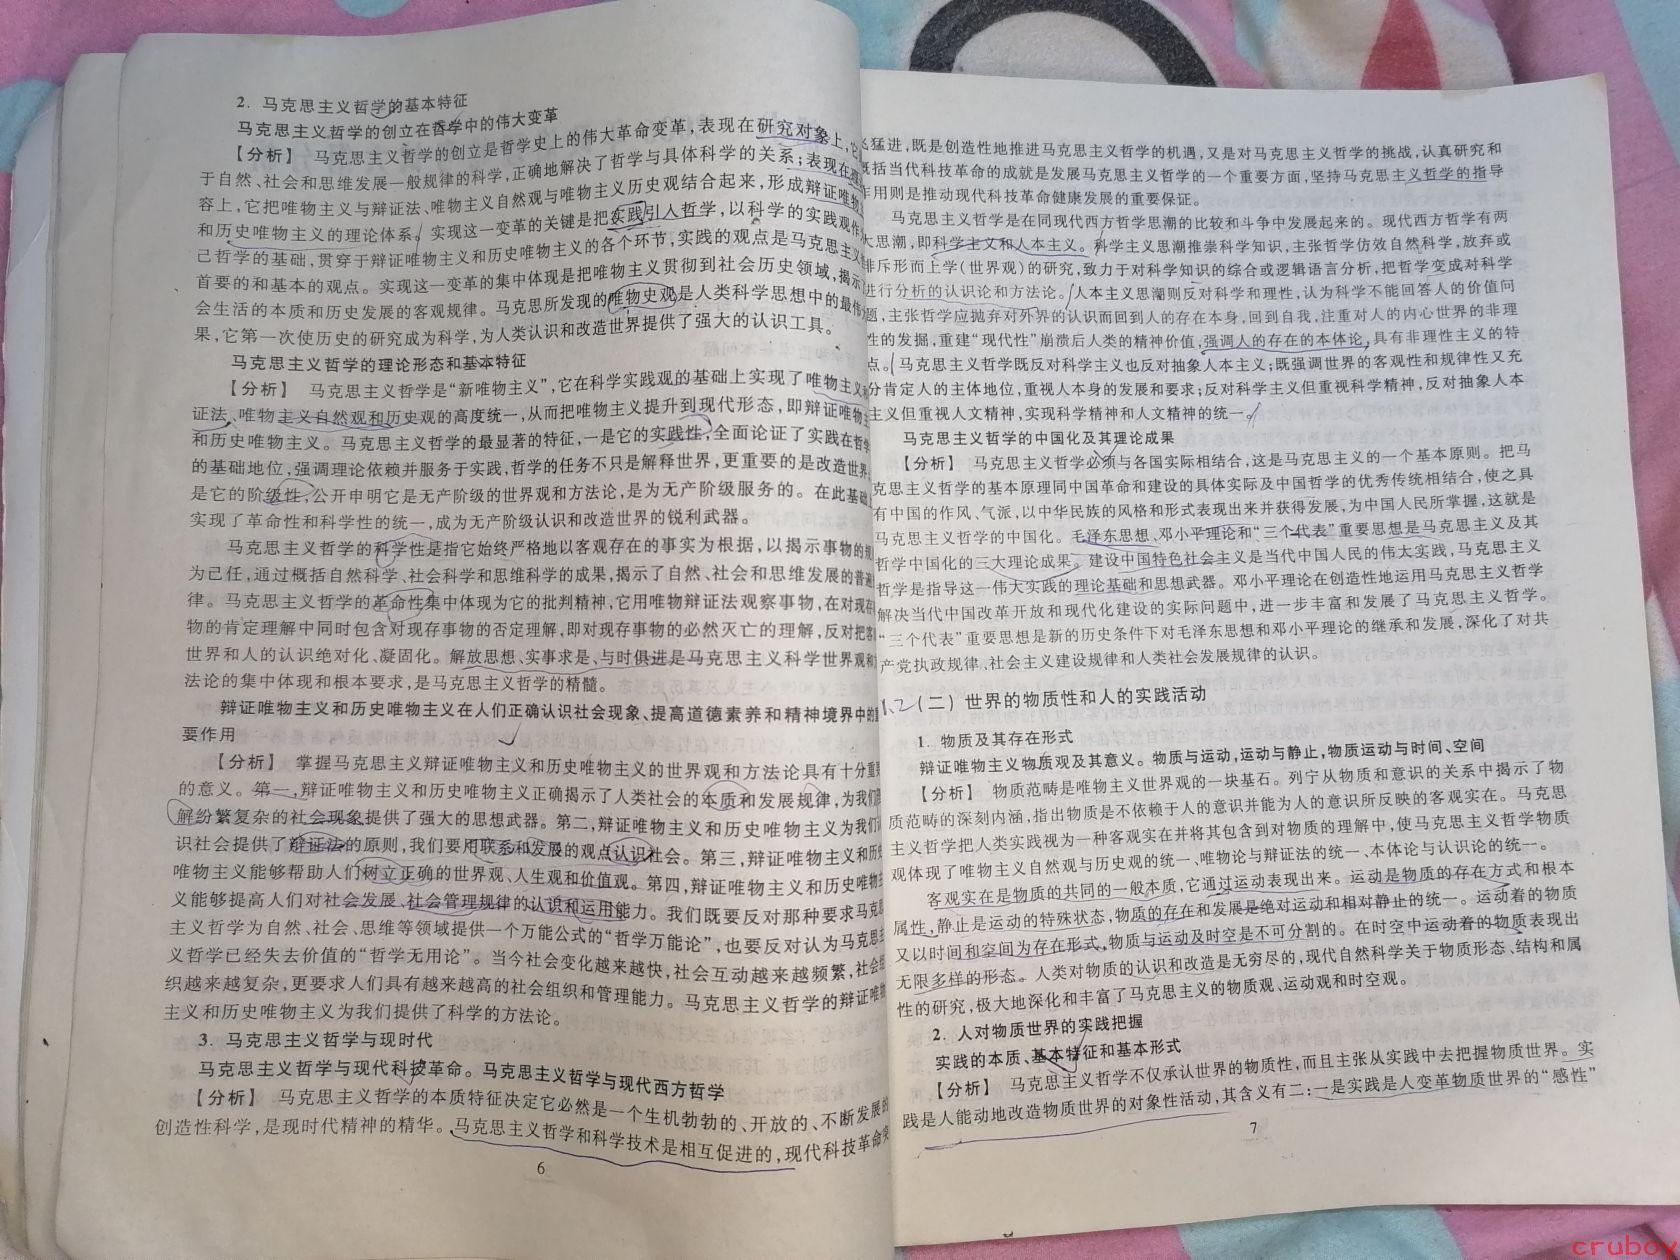 2. 马克思主义哲学的基本特征
马克思主义哲学的创立在哲学中的伟大变革
【分析】 马克思主义哲学的创立是哲学史上的伟大革命变革,表现在研究对象上,它
于自然、社会和思维发展一般规律的科学,正确地解决了哲学与具体科学的关系;表现在
容上,它把唯物主义与辩证法、唯物主义自然观与唯物主义历史观结合起来,形成辩证唯物
和历史唯物主义的理论体系。实现这一变革的关键是把实践引入哲学,以科学的实践观作
己哲学的基础,贯穿于辩证唯物主义和历史唯物主义的各个环节,实践的观点是马克思主义
首要的和基本的观点。实现这一变革的集中体现是把唯物主义贯彻到社会历史领域,揭示
会生活的本质和历史发展的客观规律。马克思所发现的唯物史观是人类科学思想中的最伟
果,它第一次使历史的研究成为科学,为人类认识和改造世界提供了强大的认识工具。
马克思主义哲学的理论形态和基本特征
【分析】 马克思主义哲学是“新唯物主义”,它在科学实践观的基础上实现了唯物主义
证法、唯物主义自然观和历史观的高度统一,从而把唯物主义提升到现代形态,即辩证唯物
和历史唯物主义。马克思主义哲学的最显著的特征,一是它的实践性,全面论证了实践在哲学
的基础地位,强调理论依赖并服务于实践,哲学的任务不只是解释世界,更重要的是改造世界
是它的阶级性,公开申明它是无产阶级的世界观和方法论,是为无产阶级服务的。在此基础
实现了革命性和科学性的统一,成为无产阶级认识和改造世界的锐利武器。
马克思主义哲学的科学性是指它始终严格地以客观存在的事实为根据,以揭示事物的
为己任,通过概括自然科学、社会科学和思维科学的成果,揭示了自然、社会和思维发展的普
律。马克思主义哲学的革命性集中体现为它的批判精神,它用唯物辩证法观察事物,在对现存
物的肯定理解中同时包含对现存事物的否定理解,即对现存事物的必然灭亡的理解,反对把客
世界和人的认识绝对化、凝固化。解放思想、实事求是、与时俱进是马克思主义科学世界观和
法论的集中体现和根本要求,是马克思主义哲学的精髓。
辩证唯物主义和历史唯物主义在人们正确认识社会现象、提高道德素养和精神境界中的
要作用
【分析】 掌握马克思主义辩证唯物主义和历史唯物主义的世界观和方法论具有十分重
的意义。第一,辩证唯物主义和历史唯物主义正确揭示了人类社会的本质和发展规律,为我们
解纷繁复杂的社会现象提供了强大的思想武器。第二,辩证唯物主义和历史唯物主义为我们
识社会提供了辩证法的原则,我们要用联系和发展的观点认识社会。第三,辩证唯物主义和历
唯物主义能够帮助人们树立正确的世界观、人生观和价值观。第四,辩证唯物主义和历史唯物主
义能够提高人们对社会发展、社会管理规律的认识和运用能力。我们既要反对那种要求马克
主义哲学为自然、社会、思维等领域提供一个万能公式的“哲学万能论”,也要反对认为马克思
义哲学已经失去价值的“哲学无用论”。当今社会变化越来越快,社会互动越来越频繁,社会
织越来越复杂,更要求人们具有越来越高的社会组织和管理能力。马克思主义哲学的辩证唯物
主义和历史唯物主义为我们提供了科学的方法论。
3. 马克思主义哲学与现时代
马克思主义哲学与现代科技革命。马克思主义哲学与现代西方哲学
【分析】 马克思主义哲学的本质特征决定它必然是一个生机勃勃的、开放的、不断发展的
创造性科学,是现时代精神的精华。马克思主义哲学和科学技术是相互促进的,现代科技革命
6
猛进,既是创造性地推进马克思主义哲学的机遇,又是对马克思主义哲学的挑战,认真研究和
概括当代科技革命的成就是发展马克思主义哲学的一个重要方面,坚持马克思主义哲学的指导
作用则是推动现代科技革命健康发展的重要保证。
马克思主义哲学是在同现代西方哲学思潮的比较和斗争中发展起来的。现代西方哲学有两
大思潮,即科学主义和人本主义。科学主义思潮推崇科学知识,主张哲学仿效自然科学,放弃或
排斥形而上学(世界观)的研究,致力于对科学知识的综合或逻辑语言分析,把哲学变成对科学
进行分析的认识论和方法论。人本主义思潮则反对科学和理性,认为科学不能回答人的价值问
题,主张哲学应抛弃对外界的认识而回到人的存在本身,回到自我,注重对人的内心世界的非理
性的发掘,重建“现代性”崩溃后人类的精神价值,强调人的存在的本体论,具有非理性主义的特
点。马克思主义哲学既反对科学主义也反对抽象人本主义;既强调世界的客观性和规律性又充
分肯定人的主体地位,重视人本身的发展和要求;反对科学主义但重视科学精神,反对抽象人本
主义但重视人文精神,实现科学精神和人文精神的统一。
马克思主义哲学的中国化及其理论成果
【分析】 马克思主义哲学必须与各国实际相结合,这是马克思主义的一个基本原则。把马
克思主义哲学的基本原理同中国革命和建设的具体实际及中国哲学的优秀传统相结合,使之具
有中国的作风、气派,以中华民族的风格和形式表现出来并获得发展,为中国人民所掌握,这就是
马克思主义哲学的中国化。毛泽东思想、邓小平理论和“三个代表”重要思想是马克思主义及其
哲学中国化的三大理论成果。建设中国特色社会主义是当代中国人民的伟大实践,马克思主义
哲学是指导这一伟大实践的理论基础和思想武器。邓小平理论在创造性地运用马克思主义哲学
解决当代中国改革开放和现代化建设的实际问题中,进一步丰富和发展了马克思主义哲学。
“三个代表”重要思想是新的历史条件下对毛泽东思想和邓小平理论的继承和发展,深化了对共
产党执政规律、社会主义建设规律和人类社会发展规律的认识。
1.2 (二) 世界的物质性和人的实践活动
1. 物质及其存在形式
辩证唯物主义物质观及其意义。物质与运动,运动与静止,物质运动与时间、空间
【分析】 物质范畴是唯物主义世界观的一块基石。列宁从物质和意识的关系中揭示了物
质范畴的深刻内涵,指出物质是不依赖于人的意识并能为人的意识所反映的客观实在。马克思
主义哲学把人类实践视为一种客观实在并将其包含到对物质的理解中,使马克思主义哲学物质
观体现了唯物主义自然观与历史观的统一、唯物论与辩证法的统一、本体论与认识论的统一。
客观实在是物质的共同的一般本质,它通过运动表现出来。运动是物质的存在方式和根本
属性,静止是运动的特殊状态,物质的存在和发展是绝对运动和相对静止的统一。运动着的物质
又以时间和空间为存在形式,物质与运动及时空是不可分割的。在时空中运动着的物质表现出
无限多样的形态。人类对物质的认识和改造是无穷尽的,现代自然科学关于物质形态、结构和属
性的研究,极大地深化和丰富了马克思主义的物质观、运动观和时空观。
2. 人对物质世界的实践把握
实践的本质、基本特征和基本形式
【分析】 马克思主义哲学不仅承认世界的物质性,而且主张从实践中去把握物质世界。实
践是人能动地改造物质世界的对象性活动,其含义有二:一是实践是人变革物质世界的“感性”
7
cruboy